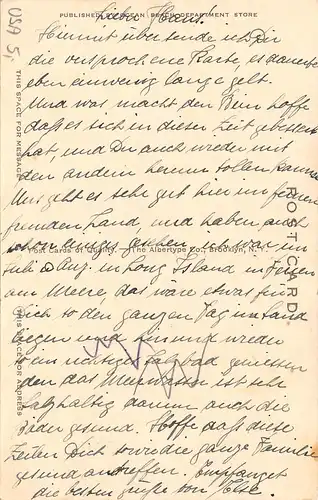 PUBLISHED BY OCEAN DEPARTMENT STORE
Lieber Hansi!
Hiermit übersende ich Dir
die versprochene Karte, es dauerte
eben ein wenig lange gelt.
Und was macht den Dein hoffe
daß es sich in dieser Zeit gebessert
hat, und Du auch wieder mit
den andern herum tollen kannst
Uns geht es sehr gut hier im fernen
fremden Land, und haben auch
schon einiges gesehen. Ich war im
Juli & Aug. in Long Island in Ferien
am Meere, das wäre etwas für
Dich so den ganzen Tag im Sand
liegen und hin und wieder
so ein richtiges Salzbad geniessen
den das Meerwasser ist sehr
salzhaltig darum auch die
Bäder gesund. Hoffe daß diese
Zeilen Dich sowie die ganze Familie
gesund antreffen. Empfanget
die besten Grüße von Ilse.
USA
THIS SPACE FOR MESSAGE
POST CARD
Post Cards of Quality. - The Albertype Co., Brooklyn, N. Y.
THIS SPACE FOR ADDRESS